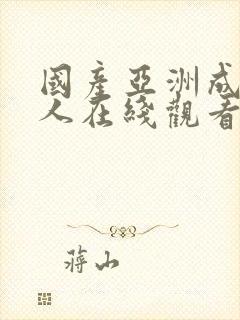 國產亞洲成
人在綫觀看
蔣山